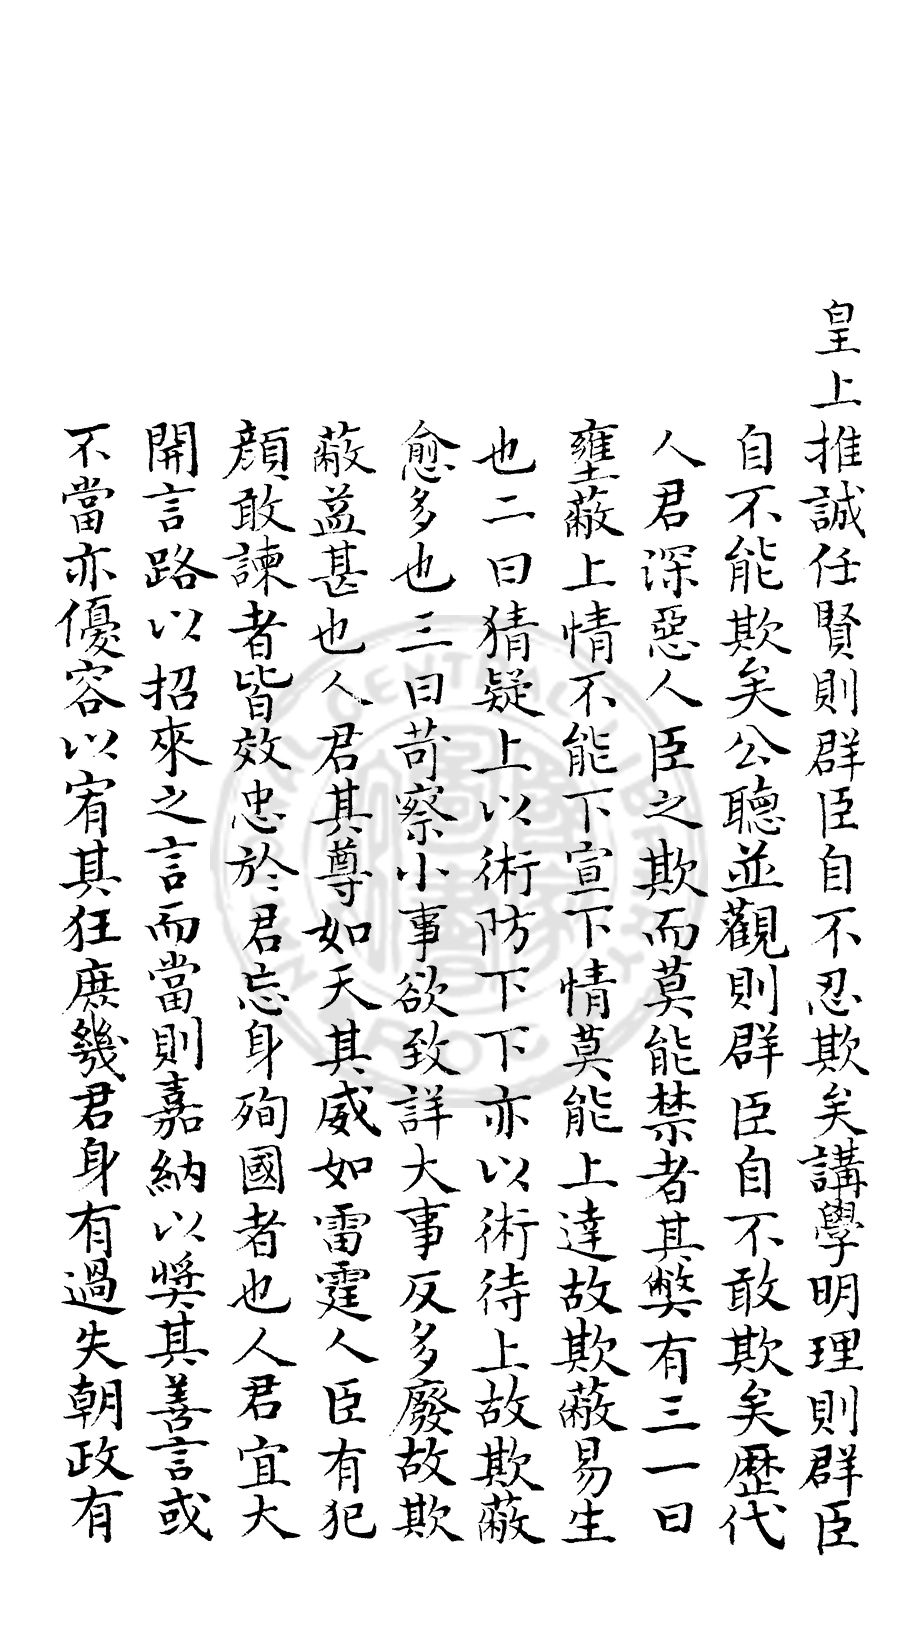 皇上推誠任賢則群臣自不忍欺矣講學明理則群臣
自不能欺矣公聽並觀則群臣自不敢欺矣歷代
人君深惡人臣之欺而莫能禁者其弊有三一曰
壅蔽上情不能下宣下情莫能上達故欺蔽易生
也二曰猜疑上以術防下下亦以術待上故欺蔽
愈多也三曰苛察小事欲致詳大事反多廢故欺
蔽益甚也人君其尊如天其威如雷霆人臣有犯
顏敢諫者皆效忠於君忘身殉國者也人君宜大
開言路以招來之言而當則嘉納以奬其善言或
不當亦優容以宥其狂庶幾君身有過失朝政有